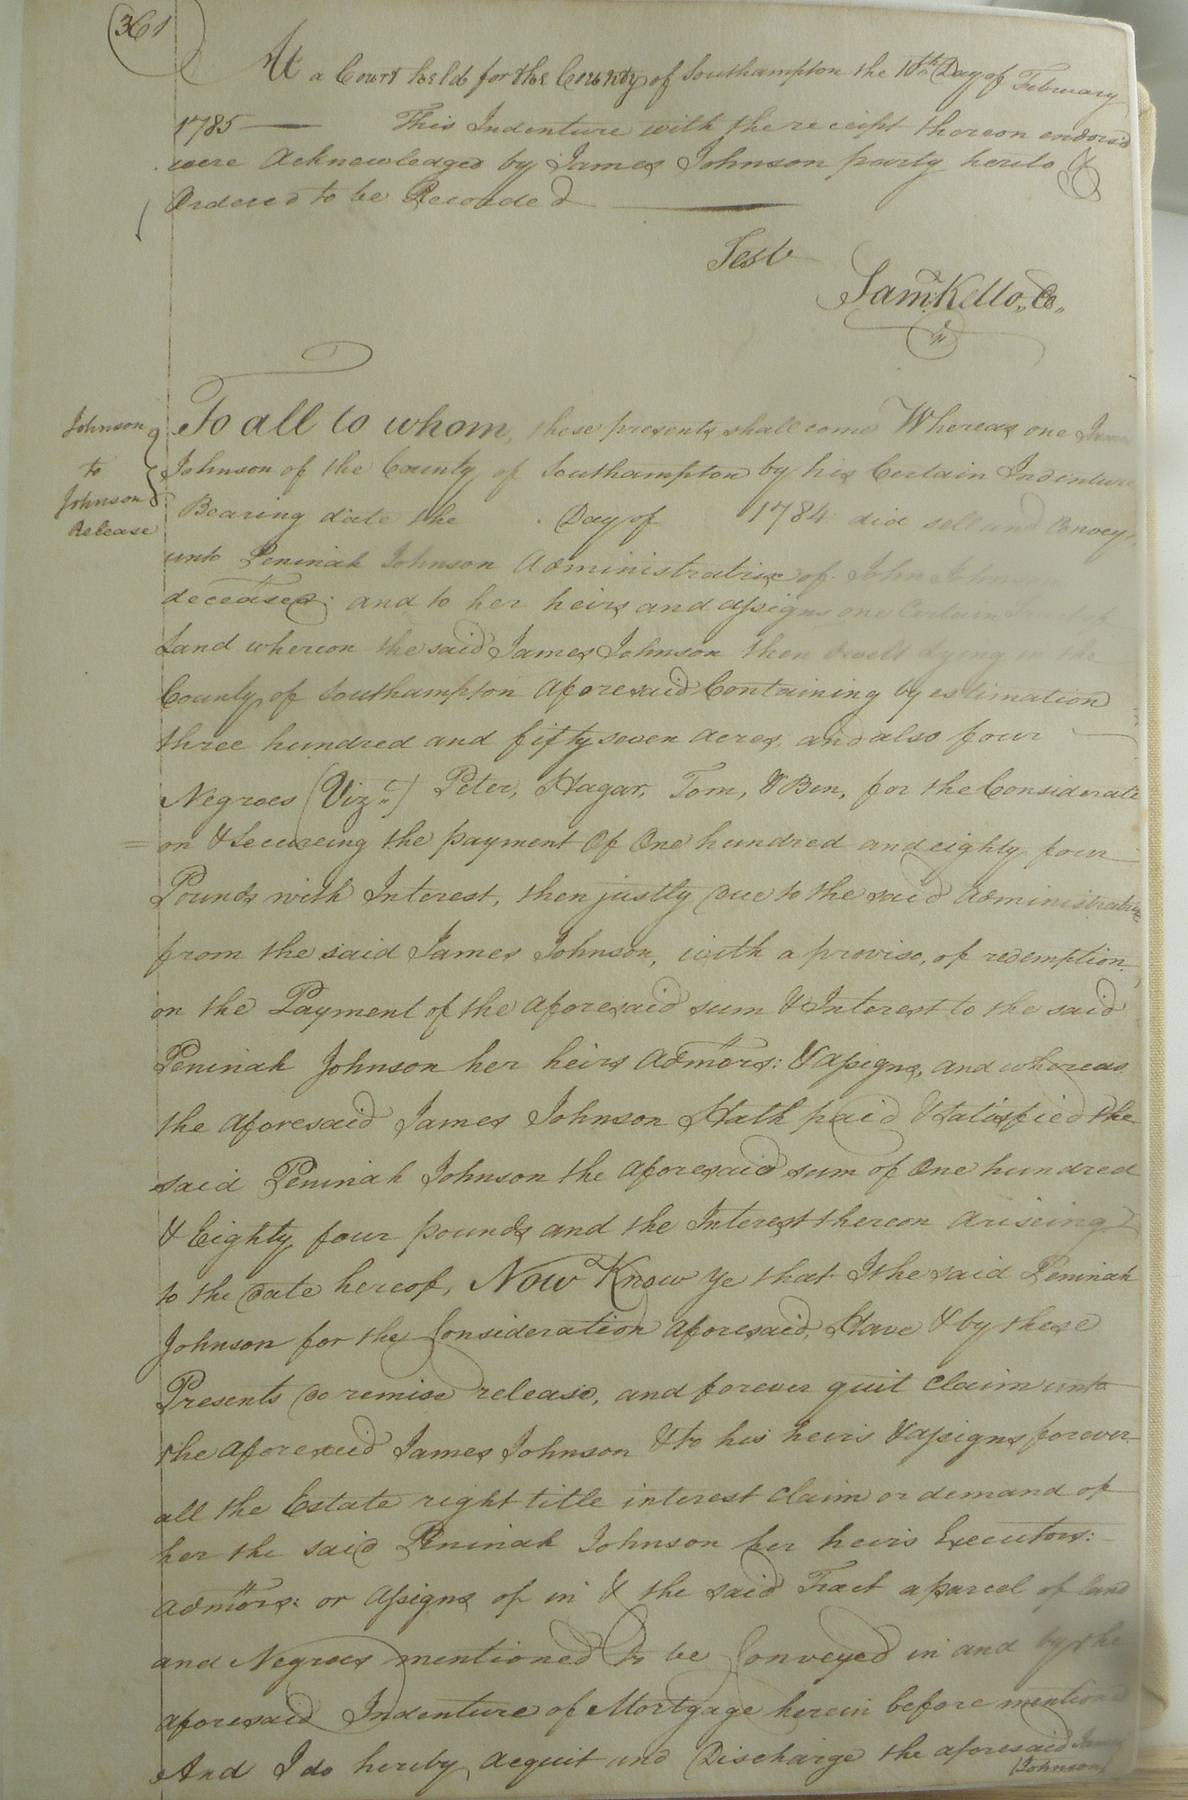 361
At a Court held for the County of Southampton the 10th Day of February
1785 — This Indenture with the receipt thereon endorsd
were Acknowledged by James Johnson party hereto &
Ordered to be Recorded
Test
Saml. Kello,, Co,,
Johnson
to
Johnson
Release
To all to whom, these presents shall come Whereas one James
Johnson of the County of Southampton by his Certain Indenture
Bearing date the Day of 1784 did sell and Convey
unto Peninah Johnson Administratrix of John Johnson
deceased: and to her heirs and assigns one Certain
Land whereon the said James Johnson then dwelt Lying in the
County of Southampton aforesaid Containing by estimation
three hundred and fifty seven acres, and also four
Negroes (Vizt.) Peter, Hagar, Tom, & Ben, for the Considerati
= on & Secureing the payment Of One hundred and eighty four
Pounds with Interest, then justly due to the said Administratrix
from the said James Johnson, with a proviso, of redemption
on the Payment of the aforesaid sum & Interest to the said
Peninah Johnson her heirs admors: & assigns, and whereas
the aforesaid James Johnson Hath paid & Satisfied the
said Peninah Johnson the aforesaid sum of One hundred
& Eighty four pounds and the Interest thereon ariseing
to the date hereof, Now Know ye that I the said Peninah
Johnson for the Consideration aforesaid, Have & by these
Presents do remise release, and forever quit claim unto
the aforesaid James Johnson & to his heirs & assigns forever
all the Estate right title interest claim or demand of
her the said Peninah Johnson her heirs Executors:
admors: or assigns of in & the said Tract a parcel of land
and Negroes mentioned to be Conveyed in and by the
aforesaid Indenture of Mortgage herein before mentioned
And I do hereby acquit and Discharge the aforesaid James
(Johnson)